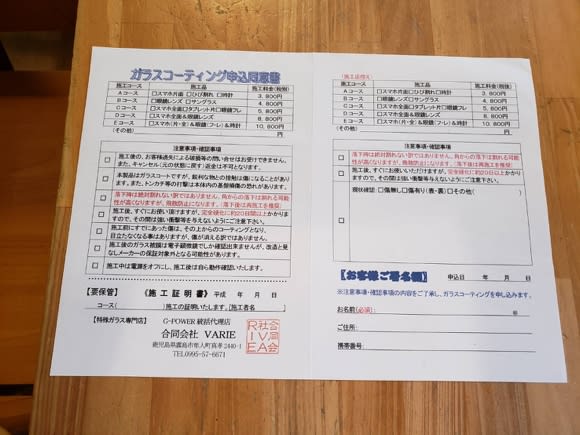 ガラスコーティング申込同意書
施工コース 施工品 施工料金(税別)
Aコース □スマホ片面 □ひび割れ □時計 3,800円
Bコース □眼鏡レンズ □サングラス 4,800円
Cコース □スマホ全面 □タブレット片 □眼鏡フレ 5,800円
Dコース □スマホ全面&眼鏡レンズ 8,800円
Eコース □スマホ(片・全)&眼鏡(フ・レ)&時計 10,800円
(その他) 円
注意事項・確認事項
□ 施工後、お客様過失による破損等の問い合せはお受けできません。
また、キャンセル(元の状態に戻す)返金は不可となります。
□ 本製品はガラスコートですが、鋭利な物との接触は傷になることがあります。
また、トンカチ等の打撃は本体内の基盤損傷の恐れがあります。
□ 落下時は絶対割れない訳ではありません。角からの落下は割れる可能
性が高くなりますが、飛散防止になります。(落下後は再施工を推奨)
□ 施工後、すぐにお使い頂けますが、完全硬化に約20日間以上かかりま
すので、その間は強い衝撃等を与えないようにご注意下さい。
□ 施工前にすでにあった傷は、その上からのコーティングとなり、
目立たなくなる事はありますが、傷が消える訳ではありません。
□ 施工後のガラス被膜は電子顕微鏡でしか確認出来ませんが、改造と見
なしメーカーの保証対象外となる可能性があります。
□ 施工中は電源をオフにし、施工後は自ら動作確認いたします。
【要保管】 《施工証明書》 平成 年 月 日
コース( )の施工の証明いたします。[施工者名
【特殊ガラス専門店】 G-POWER 統括代理店
合同会社 VARIE
鹿児島県霧島市隼人町真孝2440-1
TEL0995-57-6671
合同会社VARIE
(施工店控え)
施工コース 施工品 施工料金(税後)
Aコース □スマホ片面 □ひび割れ □時計 3,800円
Bコース □眼鏡レンズ □サングラス 4,800円
Cコース □スマホ全面 □タブレット片 □眼鏡フレ 5,800円
Dコース □スマホ全面&眼鏡レンズ 8,800円
Eコース □スマホ(片・全)&眼鏡(フ・レ)&時計 10,800円
(その他) 円
注意事項・確認事項
□ 落下時は絶対割れない訳ではありません。角からの落下は割れる可能
性が高くなりますが、飛散防止になります。(落下後は再施工を推奨)
□ 施工後、すぐにお使い頂けますが、完全硬化に約20日以上かかりま
すので、その間は強い衝撃等を与えないようにご注意下さい。
□ 現状確認:□傷無し □傷有り(表・裏) □その他( )
【お客様ご署名欄】 申込日 年 月 日
※注意事項・確認事項の内容をご了承し、ガラスコーティングを申し込みます。
お名前(必須): ㊞
ご住所:
携帯番号: